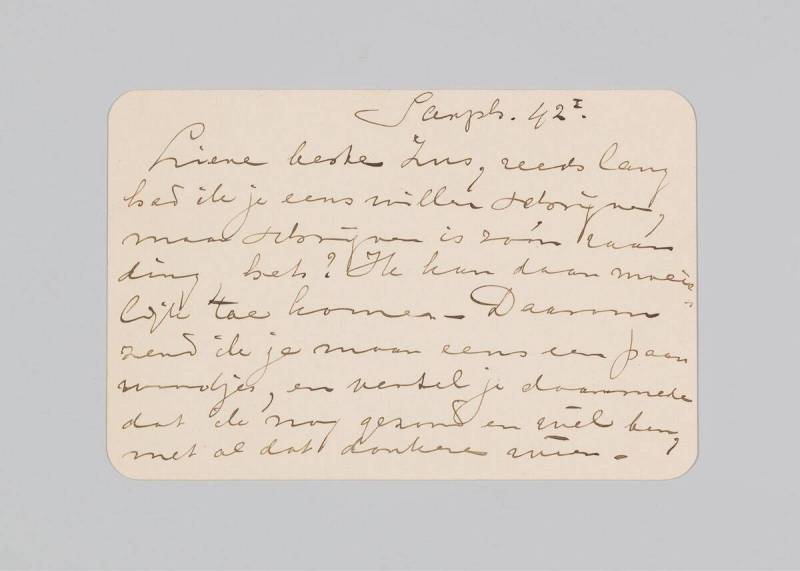 Sarph. 42 I.
Lieve beste Zus, reeds lang
had ik je eens willen schrijven,
maar schrijven is zoo'n raar
ding hè? Ik kan daar moei-
lijk toe komen – Daarom
zend ik je maar eens een paar
woordjes, en vertel je daarmede
dat ik nog gezond en wel ben,
met al dat donkere weer.